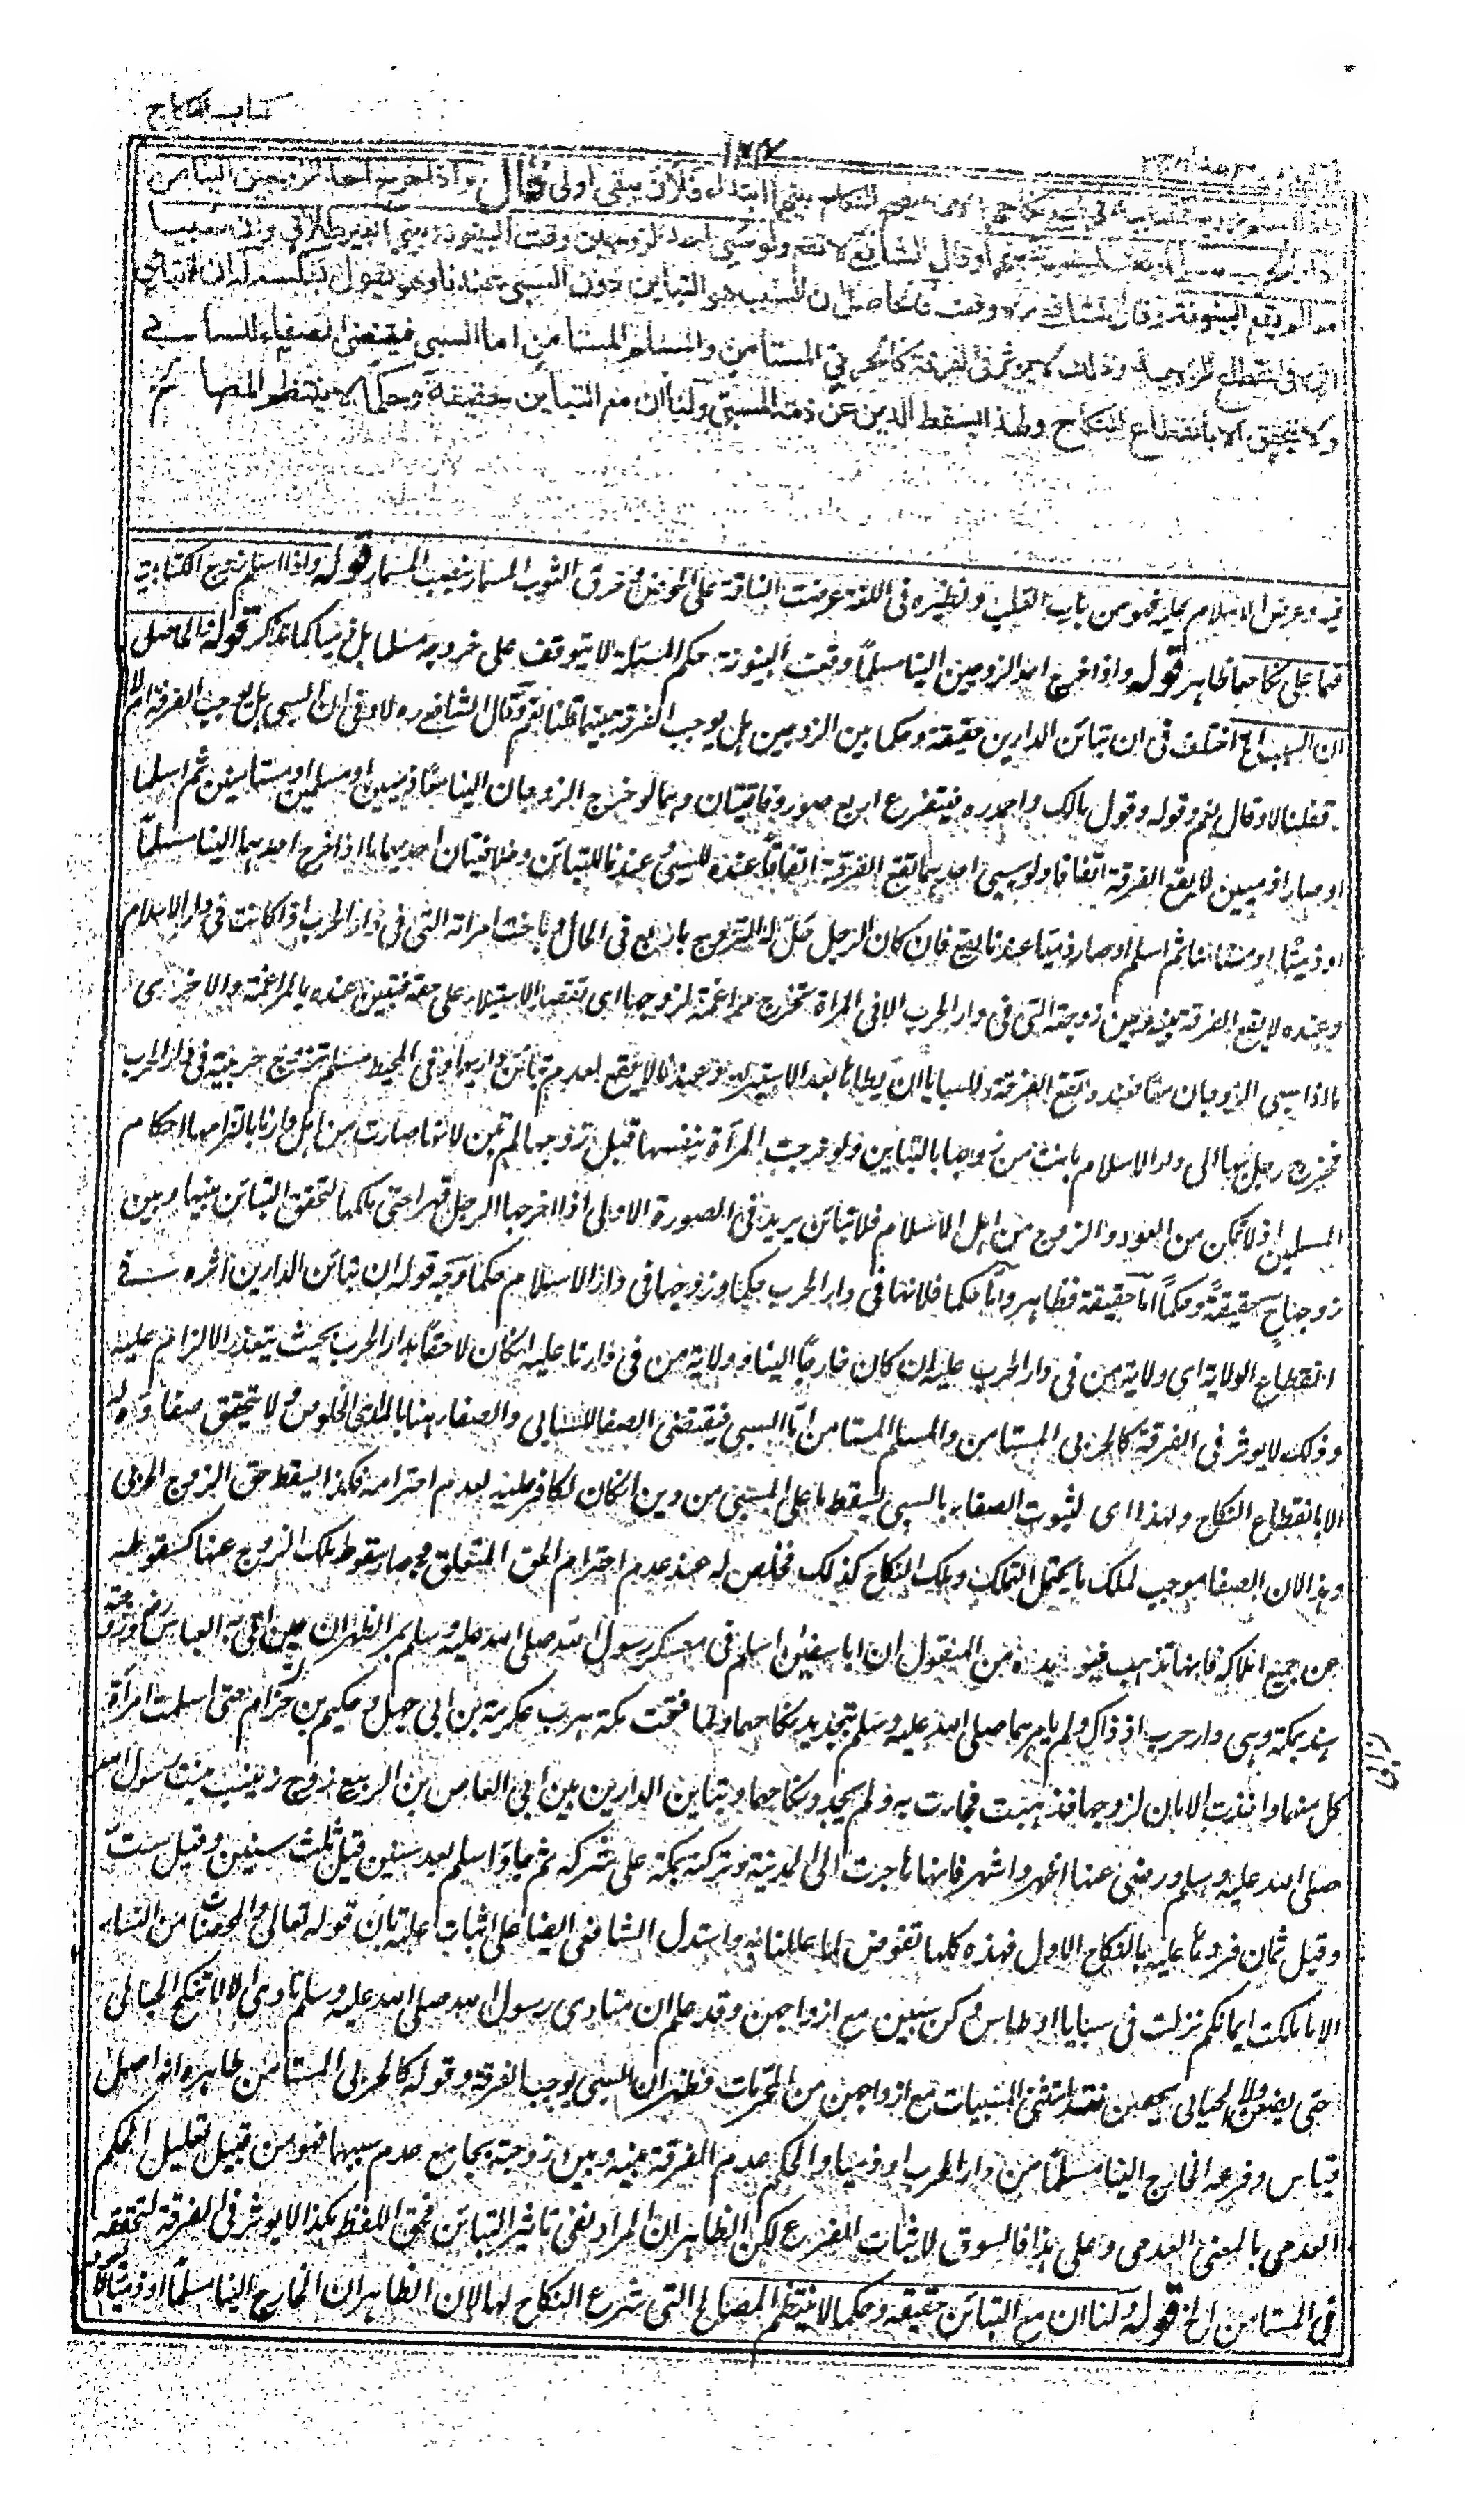 كتاب النكاح
١٧٤
ابتداء فلان يبقى اولى قال واذا خرج احد الزوجين الينا من
دار الحرب وقال الشافعي لا تقع ولو سبي احد الزوجين وقعت البينونة بينهما بغير طلاق وان سبيا
معا لم تقع البينونة وقال الشافعي وقعت فالحاصل ان السبب هو التباين دون السبي عندنا وهو يقول بعكسه له ان التباين
اثره في انقطاع الولاية وذلك لا يؤثر في الفرقة كالحربي المستامن والمسلم المستامن اما السبي فيقتضي الصفاء للسابي
ولا يتحقق الا بانقطاع النكاح ولهذا يسقط الدين عن ذمة المسبي ولنا ان مع التباين حقيقة وحكما لا ينتظم المصالح
فيه وعرض الاسلام عليه فهو من باب القلب ونظيره في اللغة عرضت الناقة على الحوض وخرق الثوب المسمار قوله واذا اسلم زوج الكتابية
فهما على نكاحهما ظاهر قوله واذا خرج احد الزوجين الينا مسلما وقعت البينونة حكم المسئلة لا يتوقف على خروجه مسلما بل ذميا كما نذكر قوله فالحاصل
ان السبب الخ اختلف في ان تباين الدارين حقيقة وحكما بين الزوجين هل يوجب الفرقة بينهما قلنا نعم وقال الشافعي ره لا وفي ان السبي هل يوجب الفرقة ام لا
فقلنا لا وقال نعم وقوله وقول مالك واحمد ره فيتفرع اربع صور وفاقيتان وهما لو خرج الزوجان الينا معا ذميين او مسلمين او مستامنين ثم اسلما
او صارا ذميين لا يقع الفرقة اتفاقا ولو سبي احدهما تقع الفرقة اتفاقا عنده للسبي وعندنا للتباين وخلافيتان احدهما ما اذا خرج احدهما الينا مسلما
او ذميا او مستامنا ثم اسلم او صار ذميا عندنا يقع فان كان الرجل حل له التزوج باربع في الحال وباخت امراته التي في دار الحرب اذا كانت في دار الاسلام
وعنده لا يقع الفرقة بينه وبين زوجته التي في دار الحرب الا في المراة تخرج مراغمة لزوجها اي تقصد الاستيلاء على حقه فتبين عنده بالمراغمة والاخرى
ما اذا سبي الزوجان معا فعنده تقع الفرقة فللسابي ان يطأها بعد الاستبراء وعندنا لا يقع لعدم تباين داريهما وفي المحيط مسلم تزوج حربية في دار الحرب
فخرج رجل بها الى دار الاسلام بانت من زوجها بالتباين ولو خرجت المرأة بنفسها قبل زوجها لم تبن لانها صارت من اهل دارنا بالتزامها احكام
المسلمين اذ لا تمكن من العود والزوج من اهل الاسلام فلا تباين يريد في الصورة الاولى اذا اخرجها الرجل قهرا حتى ملكها لتحقق التباين بينها وبين
زوجها ح حقيقة وحكما اما حقيقة فظاهر واما حكما فلانها في دار الحرب حكما وزوجها في دار الاسلام حكما وجه قوله ان تباين الدارين اثره في
انقطاع الولاية اي ولاية من في دار الحرب عليه ان كان خارجا الينا وولاية من في دارنا عليه ان كان لاحقا بدار الحرب بحيث يتعذر الالزام عليه
وذلك لا يوثر في الفرقة كالحربي المستامن والمسلم المستامن اما السبي فيقتضي الصفا للسابي والصفاء هنا بالمد اي الخلوص ولا يتحقق صفاؤه له
الا بانقطاع النكاح ولهذا اي لثبوت الصفاء بالسبي يسقط ما على المسبي من دين ان كان لكافر عليه لعدم احترامه فكذا يسقط حق الزوج الحربي
وهذا لان الصفا موجب لملك ما يحتمل التملك وملك النكاح كذلك فخلص له عند عدم احترام الحق المتعلق به وصار سقوط ملك الزوج عنها كسقوط ملكه
عن جميع املاكه فانها تذهب فيؤيده من المنقول ان ابا سفيان اسلم في معسكر رسول الله صلى الله عليه وسلم بمر الظهران حين اتى به العباس رض وزوجته
هند بمكة وهي دار حرب اذ ذاك ولم يامرهما صلى الله عليه وسلم بتجديد نكاحهما ولما فتحت مكة هرب عكرمة بن ابي جهل وحكيم بن حزام حتى اسلمت امرأة
كل منهما واخذت الامان لزوجها فذهبت فجاءت به ولم يجدد نكاحهما وتباين الدارين بين ابي العاص بن الربيع زوج زينب بنت رسول الله
صلى الله عليه وسلم ورضي عنها اظهر واشهر فانها هاجرت الى المدينة وتركته بمكة على شركه ثم جاء واسلم بعد سنين قيل ثلث سنين وقيل ست
وقيل ثمان فردها عليه بالنكاح الاول فهذه كلها تقوض ما عللنا به واستدل الشافعي ايضا على اثبات علته بان قوله تعالى والمحصنات من النساء
الا ما ملكت ايمانكم نزلت في سبايا اوطاس وكن سبين مع ازواجهن وقد علم ان منادى رسول الله صلى الله عليه وسلم نادى الا لا تنكح الحبالى
حتى يضعن ولا الحيالى حتى يحضن فقد استثنى المسبيات مع ازواجهن من المحرمات فظهر ان السبي يوجب الفرقة وقوله كالحربي المستامن ظاهره انه اصل
قياس وفرعه الخارج الينا مسلما من دار الحرب او ذميا والحكم عدم الفرقة بينه وبين زوجته بجامع عدم سببها فهو من قبيل تعليل الحكم
العدمي بالمعنى العدمي وعلى هذا فالسوق لاثبات المفرع لكن الظاهر ان المراد نفي تاثير التباين فحق اللفظ هكذا لا يوثر في الفرقة لتحققه
في المستامن الخ قوله ولنا ان مع التباين حقيقة وحكما لا ينتظم المصالح التي شرع النكاح لها لان الظاهر ان الخارج الينا مسلما او ذميا